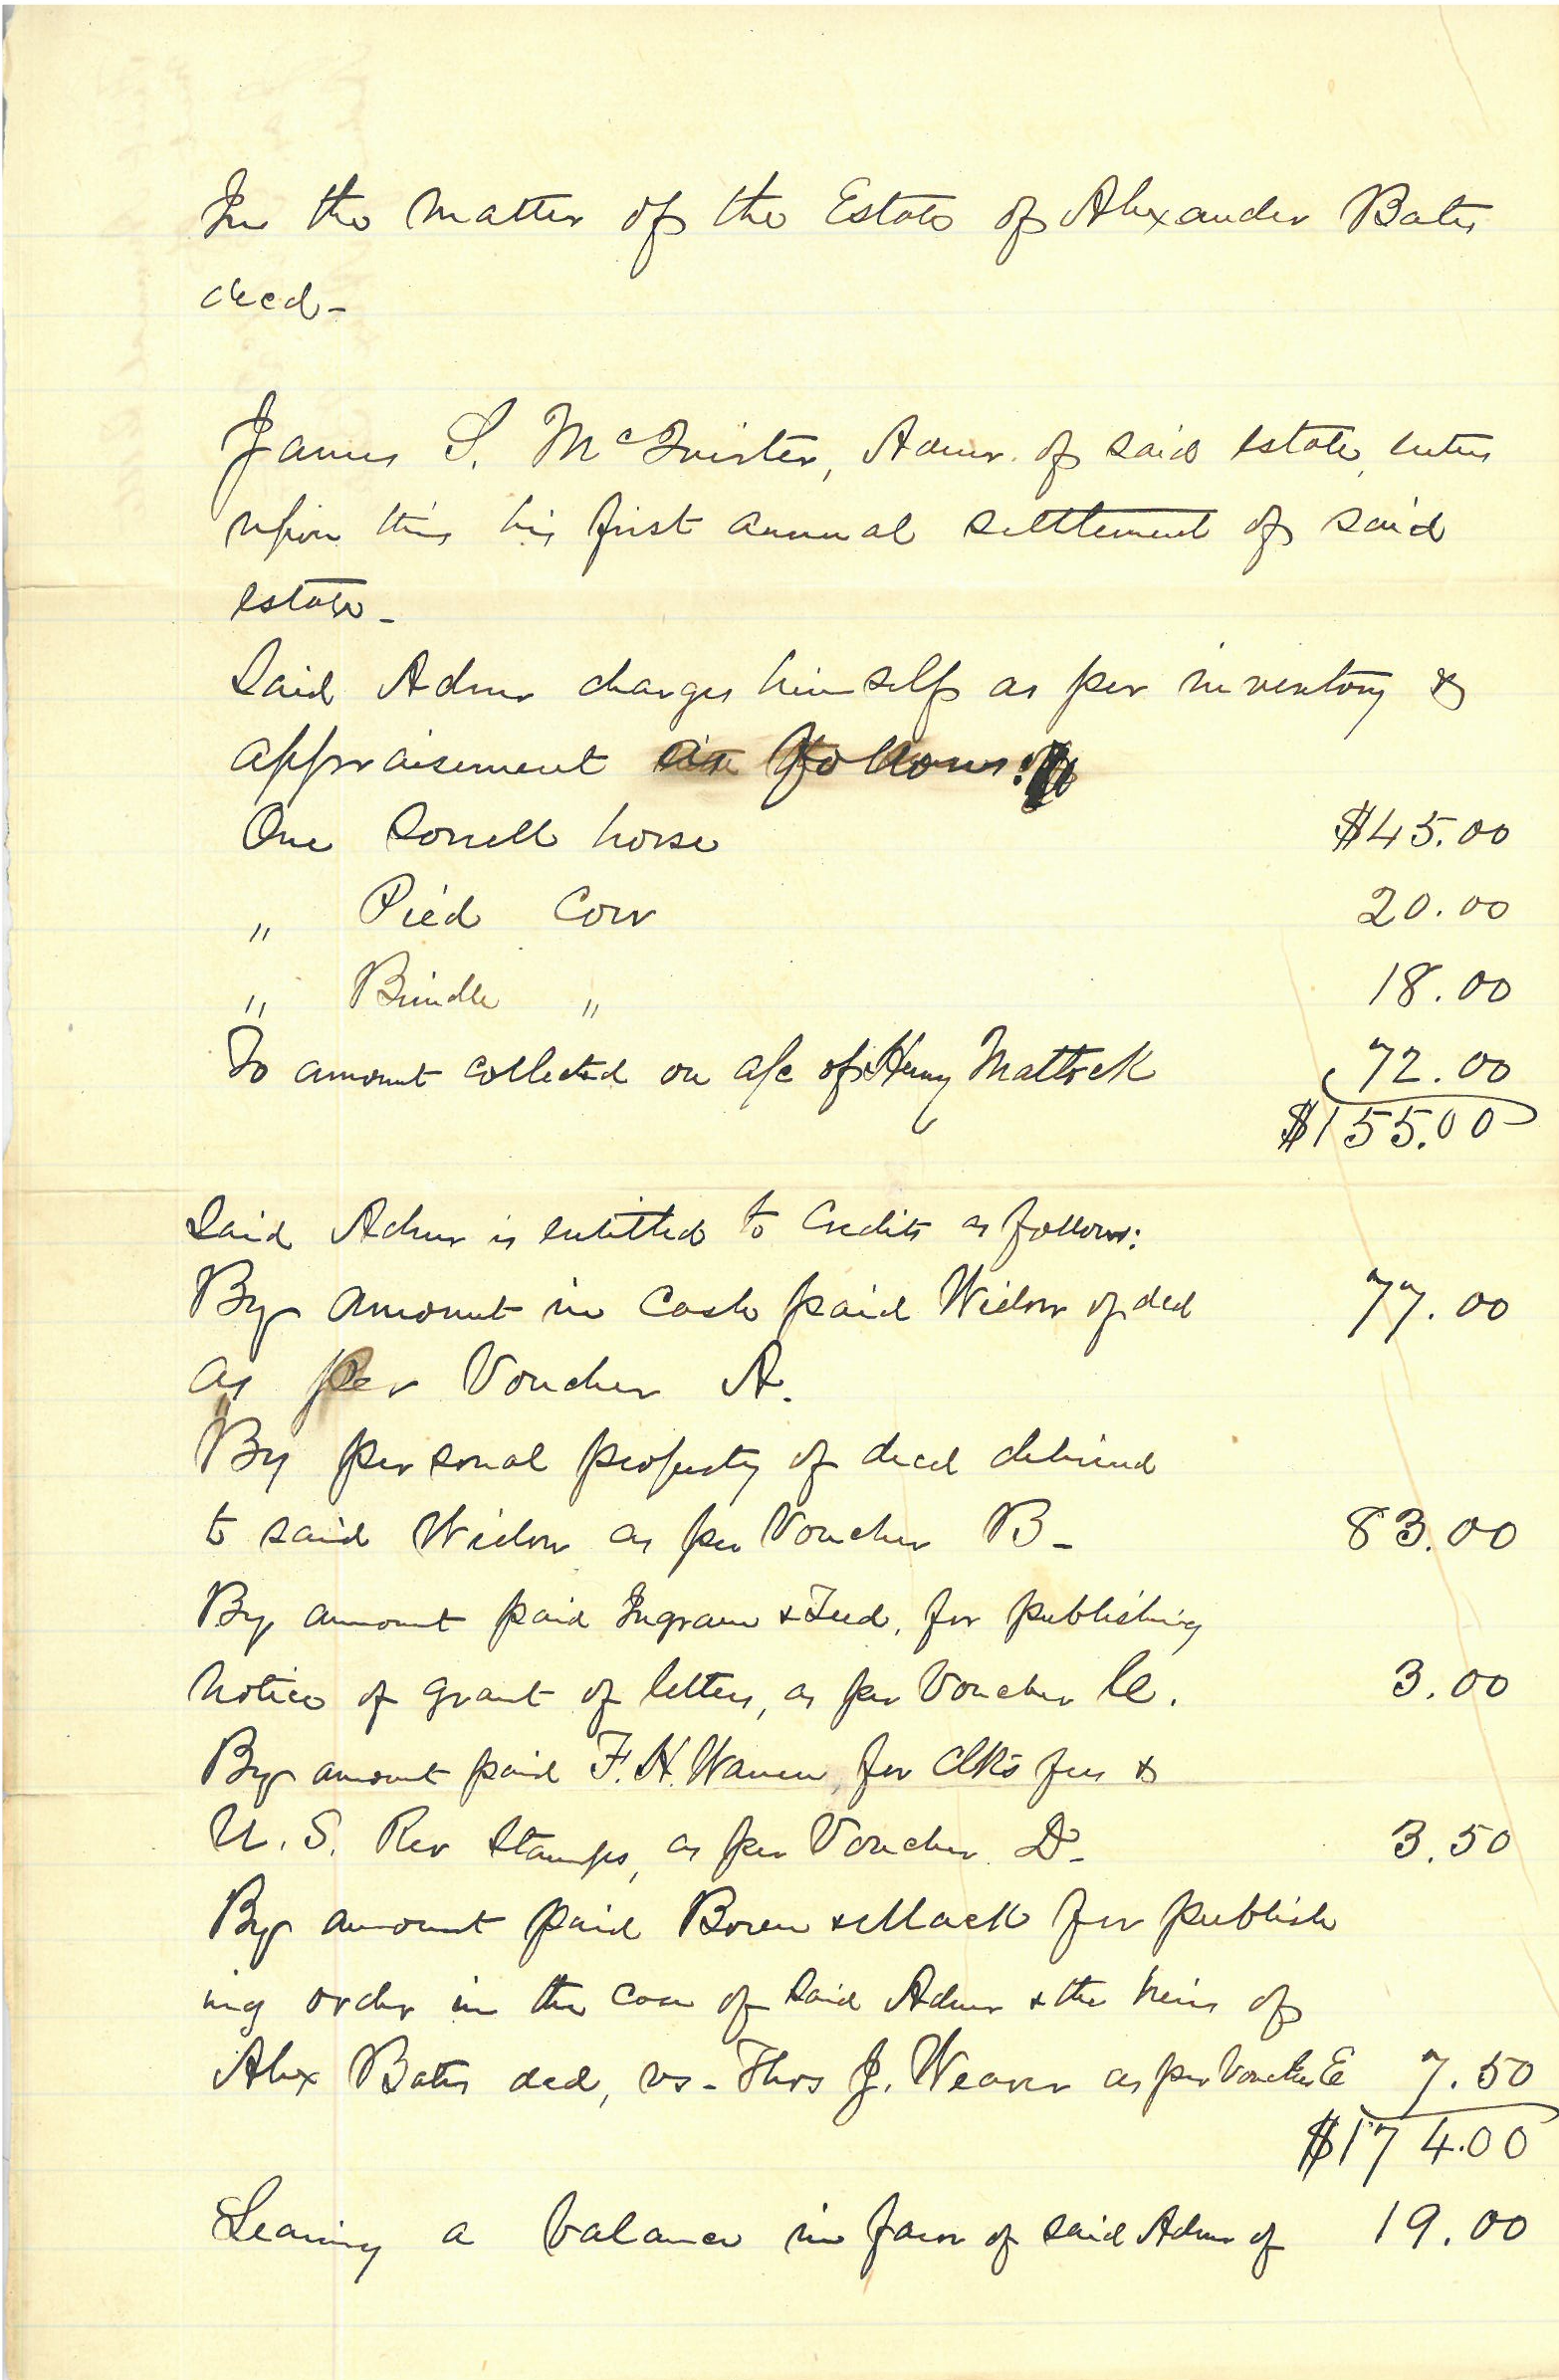 In the matter of the Estate of Alexander Bates
decd-
James S. McQuister, Admr. of said estate, enters
upon this his first annual settlement of said
estate-
Said Admr charges himself as per inventory &
appraisement as follows:
One Sorrell horse $45.00
" Pied Cow 20.00
" Brindle " 18.00
To amount collected on a/c of Henry Mattock 72.00
$155.00
Said Admr is entitled to Credits as follows:
By amount in Cash paid Widow of decd 77.00
as per Voucher A.
By personal property of decd delivered
to said Widow as per Voucher B- 83.00
By amount paid Ingram & for publishing
notice of grant of letters, as per Voucher C. 3.00
By amount paid F. H. Warren, for Clks fees &
U. S. Rev Stamps, as per Voucher D- 3.50
By amount paid Boren & Mack for publish
ing order in the case of said Admr & the heirs of
Alex Bates decd, vs- Thos J. Weaver as per Voucher E 7.50
$174.00
Leaving a balance in favor of said Admr of 19.00